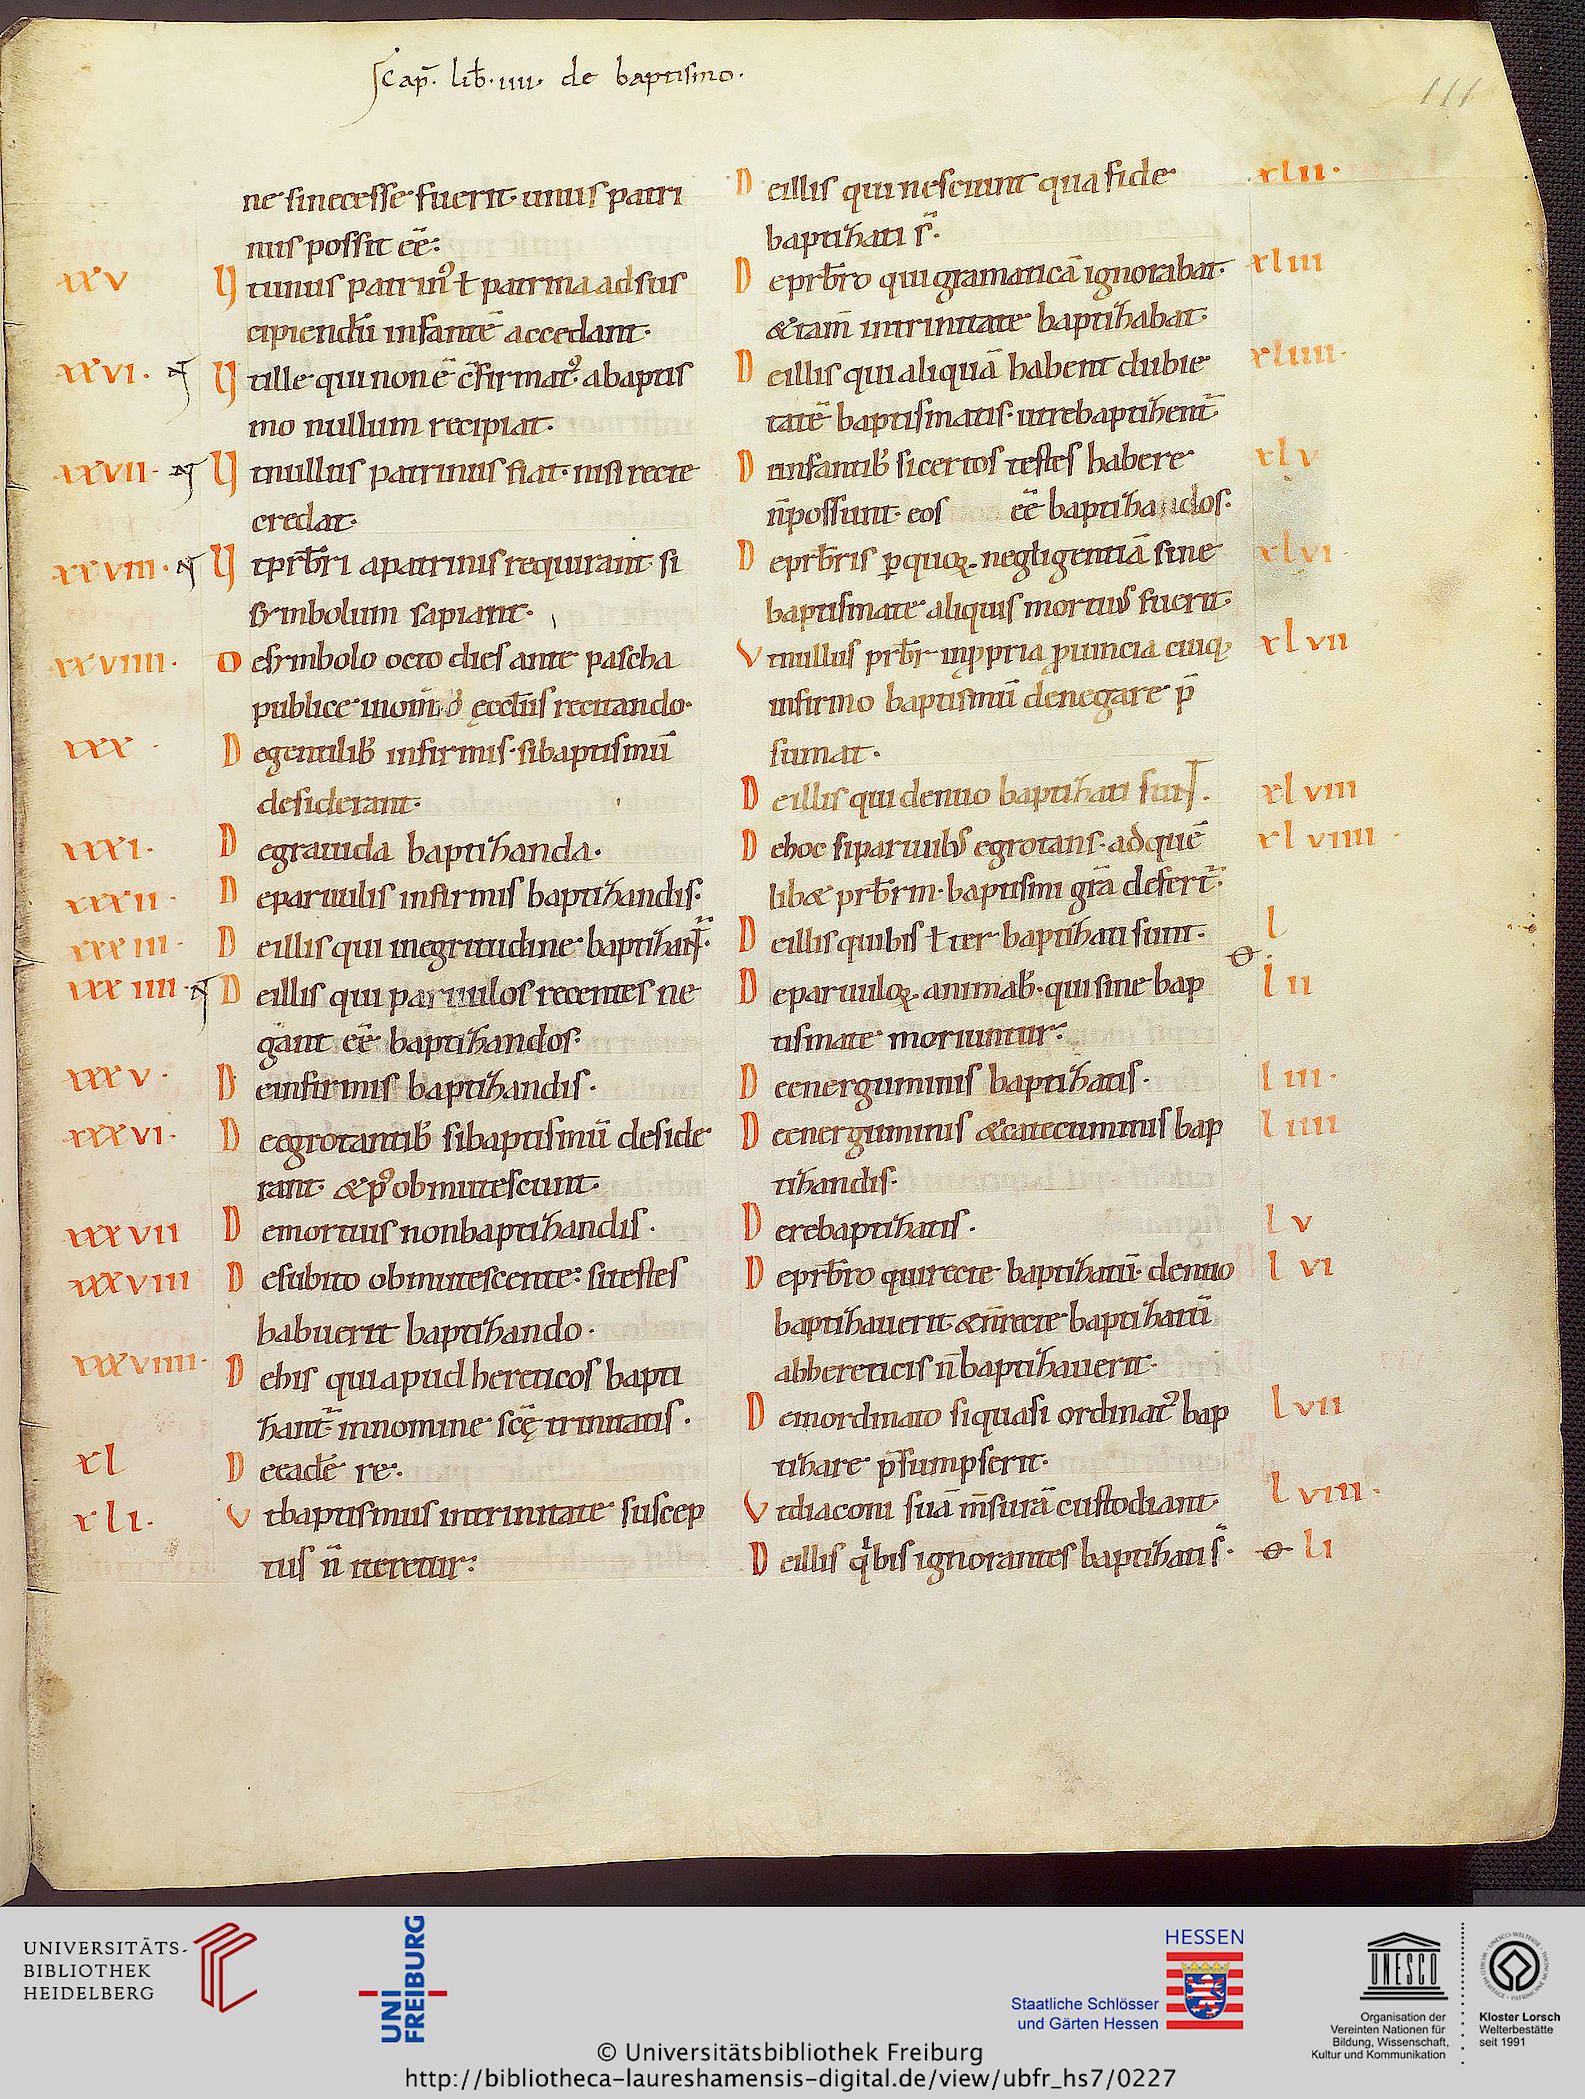 Cap̄. lib̄. iiii. de baptismo.
111
ne si necesse fuerit. unus patri
nus possit eē:
xxv Ut unus patrin᷒ ł patrina ad sus
cipiendū infantē accedant.
xxvi. Ut ille qui non ē c̄firmat᷒ a baptis
mo nullum recipiat.
xxvii. Ut nullus patrinus fiat. nisi recte
credat.
xxviii. Ut prb̄ri a patrinis requirant. si
symbolum sapiant.
xxviiii. De symbolo octo dies ante pascha
publice in ęccl̄iis recitando.
xxx. De gentilib᷒ infirmis. si baptismū
desiderant.
xxxi. De grauida baptizanda.
xxxii. De paruulis infirmis baptizandis.
xxxiii. De illis qui in egritudine baptizant᷒.
xxxiiii. De illis qui paruulos recentes ne
gant eē baptizandos.
xxxv. De infirmis baptizandis.
xxxvi. De egrotantib᷒ si baptismū deside
rant. & p᷒ obmutescunt.
xxxvii De mortuis non baptizandis.
xxxviii De subito obmutescente: si testes
habuerit baptizando.
xxxviiii. De his qui apud hereticos bapti
zant᷒ in nomine scę̄ trinitatis.
xl De eadē re.
xli. Ut baptismus in trinitate suscep
tus n̄ iteretur:
De illis qui nesciunt qua fide xlii.
baptizati s̄.
De prb̄ro qui gramaticā ignorabat. xliii
& tam̄ in trinitate baptizabat.
De illis qui aliquā habent dubie xliiii.
tatē baptismatis. ut rebaptizent᷒.
De infantib᷒ si certos testes habere xlv
n̄ possunt. eos eē baptizandos.
De prb̄ris p̱ quoꝝ negligentiā sine xlvi.
baptismate aliquis mortuus fuerit.
Ut nullus prb̄r in ꝓpria ꝓuincia cuiq;
xlvii
infirmo baptismū denegare p̄
sumat.
De illis qui denuo baptizati sunt. xlviii
De hoc si paruulus egrotans. ad quē xlviiii.
lib& prb̄rm. baptismi grā defert᷒.
De illis qui bis ł ter baptizati sunt. l
De paruuloꝝ animab᷒. qui sine bap lii
tismate moriuntur.
De energuminis baptizatis. liii.
De energuminis & catecuminis bap liiii
tizandis.
De rebaptizatis. lv
De prb̄ro qui recte baptizatū. denuo lvi
baptizauerit. & n̄ recte baptizatū
ab hereticis n̄ baptizauerit.
De inordinato si quasi ordinat᷒ bap lvii
tizare p̄sumpserit.
Ut diaconi suā m̄surā custodiant. lviii.
De illis qͥ bis ignorantes baptizati s̄. li
UNIVERSITÄTS-
BIBLIOTHEK
HEIDELBERG
UNI
FREIBURG
HESSEN
Staatliche Schlösser
und Gärten Hessen
UNESCO
Organisation der
Vereinten Nationen für
Bildung, Wissenschaft,
Kultur und Kommunikation
Kloster Lorsch
Welterbestätte
seit 1991
© Universitätsbibliothek Freiburg
http://bibliotheca-laureshamensis-digital.de/view/ubfr_hs7/0227